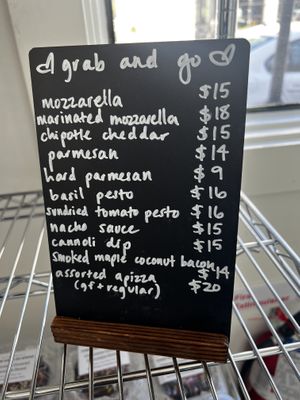 grab and go
mozzarella $15
marinated mozzarella $18
chipotle cheddar $15
parmesan $14
hard parmesan $9
basil pesto $16
sundried tomato pesto $16
nacho sauce $15
cannoli dip $15
smoked maple coconut bacon $14
assorted apizza $20
(gf + regular)